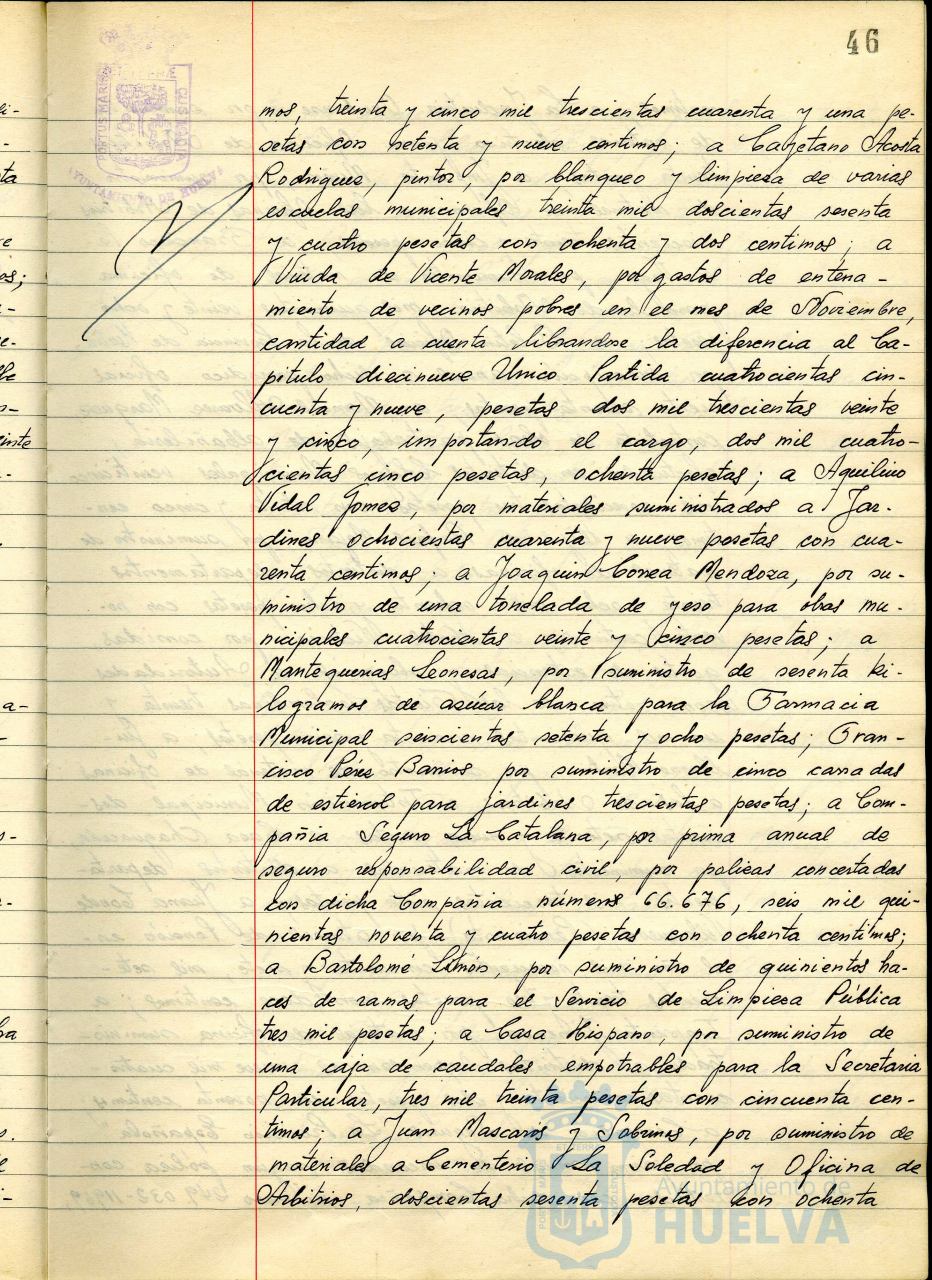 46
mos, treinta y cinco mil trescientas cuarenta y una pe-
setas con setenta y nueve centimos; a Cayetano Acosta
Rodriguez, pintor, por blanqueo y limpieza de varias
escuelas municipales treinta mil doscientas sesenta
y cuatro pesetas con ochenta y dos centimos; a
Viuda de Vicente Morales, por gastos de entena-
miento de vecinos pobres en el mes de Noviembre,
cantidad a cuenta librandose la diferencia al Ca-
pitulo diecinueve Unico Partida cuatrocientas cin-
cuenta y nueve, pesetas dos mil trescientas veinte
y cinco, importando el cargo, dos mil cuatro-
cientas cinco pesetas, ochenta pesetas; a Aquilino
Vidal Gomez, por materiales suministrados a Jar-
dines ochocientas cuarenta y nueve pesetas con cua-
renta centimos; a Joaquin Correa Mendoza, por su-
ministro de una tonelada de yeso para obras mu-
nicipales cuatrocientas veinte y cinco pesetas; a
Mantequerias Leonesas, por suministro de sesenta ki-
logramos de azúcar blanca para la Farmacia
Municipal seiscientas setenta y ocho pesetas; Fran-
cisco Pérez Barrios por suministro de cinco carradas
de estiercol para jardines trescientas pesetas; a Com-
pañia Seguro La Catalana, por prima anual de
seguro responsabilidad civil, por polizas concertadas
con dicha Compañia números 66.676, seis mil qui-
nientas noventa y cuatro pesetas con ochenta centimos;
a Bartolomé Limón, por suministro de quinientos ha-
ces de ramas para el Servicio de Limpieza Pública
tres mil pesetas; a Casa Hispano, por suministro de
una caja de caudales empotrables para la Secretaria
Particular, tres mil treinta pesetas con cincuenta cen-
timos; a Juan Mascarós y Sobrinos, por suministro de
materiales a Cementerio La Soledad y Oficina de
Arbitrios, doscientas sesenta pesetas con ochenta
Ayuntamiento de
HUELVA